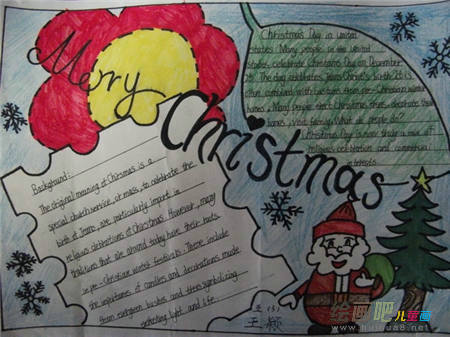 Merry
Christmas
Christmas Day in United
states Many people in the United
states celebrate Christmas Day on December
25. The day celebrates Jesus Christ's birth. It is
often combined with customs from pre-Christian winter
homes, Many people erect Christmas trees, decorate their
homes, visit family. What do people do?
Christmas Day is now
religious celebration and commercial
interests
Background:
The original meaning of Christmas is a
special church service, or mass, to celebrate the
birth of Jesus, are particularly import in
religious celebrations of Christmas. However, many
traditions that are around today have their roots
in pre-Christian winter festivals. These include
the importance of candles and decorations made
from evergreen bushes and trees symbolizing
everlasting light and life
五(5)
王颖
绘画吧 儿童画
www.huihua8.net